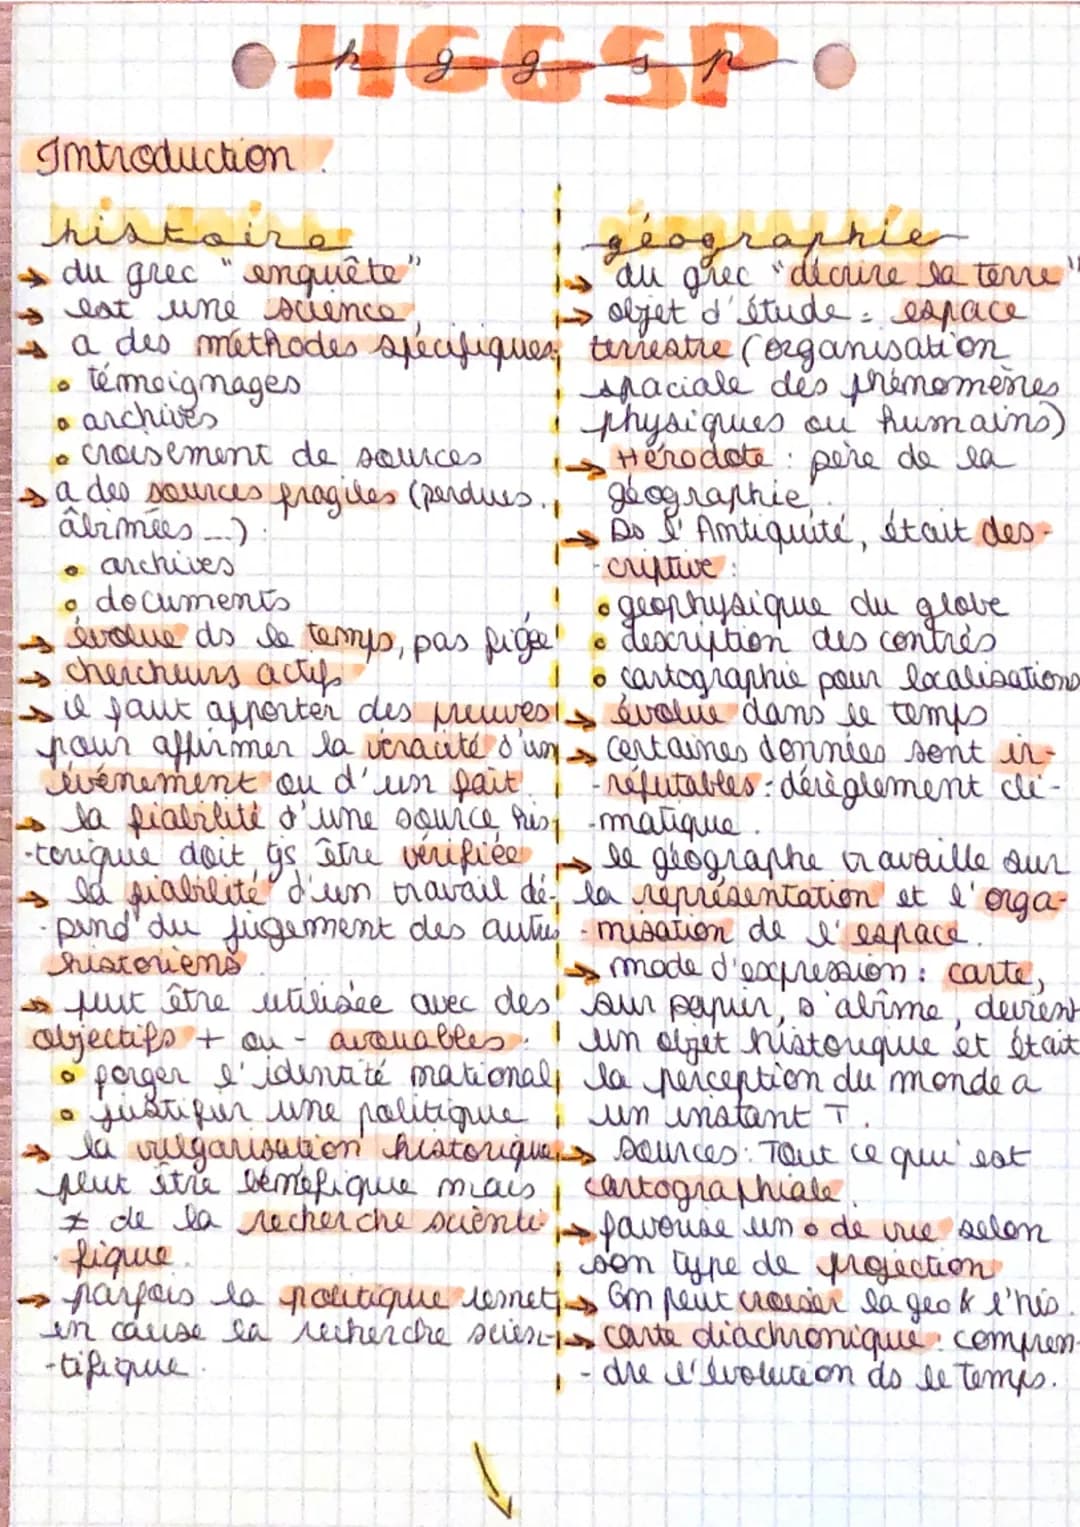 HGGSP
hggsp
Introduction.
histoire
→ du grec "enquête"
→ est une science
→ a des méthodes spécifiques:
• témoignages
• archives
• croisement de sources
→ a des sources fragiles (perdues,
âbimées ...) :
• archives
• documents
→ évolue ds le temps, pas figée
→ chercheurs actifs
→ il faut apporter des preuves
pour affirmer la véracité d'un
événement ou d'un fait.
→ la fiabilité d'une source his-
-torique doit tjs être vérifiée
→ la fiabilité d'un travail dé-
-pend du jugement des autres
historiens.
→ peut être utilisée avec des
objectifs + ou - avouables :
• forger l'identité national
• justifier une politique
→ la vulgarisation historique
peut être bénéfique mais
≠ de la recherche scienti-
-fique.
→ parfois la politique remet
en cause la recherche scien-
-tifique.
géographie
→ du grec "décrire la terre"
→ objet d'étude = espace
terrestre (organisation
spaciale des phénomènes
physiques ou humains)
→ Hérodote : père de la
géographie.
→ Ds l'Antiquité, était des-
-criptive :
• géophysique du globe
• description des contrés
• cartographie pour localisations
→ évolue dans le temps
→ certaines données sont ir-
-réfutables : dérèglement cli-
-matique.
→ le géographe travaille sur
la représentation et l'orga-
-nisation de l'espace.
→ mode d'expression : carte,
sur papier, s'abîme, devient
un objet historique et était
la perception du monde a
un instant T.
→ sources : Tout ce qui est
cartographiale.
→ favorise un • de vue selon
son type de projection
→ On peut croiser la geo & l'his.
→ carte diachronique : compren-
-dre l'évolution ds le temps.